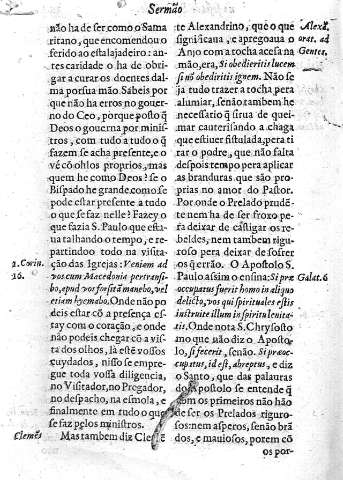 Sermão
não ha de ser como o Sama
ritano, que encomendou o
ferido ao estalajadeiro: an-
tes caridade o ha de obri-
gar a curar os doentes dal-
ma por sua mão. Sabeis por
que não ha erros no gouer-
no do Ceo, porque posto q̃
Deos o gouerna por minis-
tros, com tudo a tudo o q̃
fazem se acha presente, e o
vé cõ olhos proprios, mas
quem he como Deus? se o
Bispado he grande como se
pode estar presente a tudo
o que se faz nelle? Fazey o
que fazia S. Paulo que esta
ua talhando o tempo, e re-
partindoo todo na visita-
ção das Igrejas: Veniam ad
2. Corin.
vos cum Macedonia pertransi-
16.
bo, apud vos forsitã manebo, vel
etiam hyemabo. Onde não po
deis estar cõ a presença es
tay com o coração, e onde
não podeis chegar cõ a vis-
ta dos olhos, lá estẽ vossos
cuydados, nisso se empre-
gue toda vossa diligencia,
no Visitador, no Prègador,
no despacho, na esmola, e
finalmente em tudo o que
se faz pelos ministros.
Clemẽs
Mas tambem diz Clemẽ
te Alexandrino, que ô que
Alexã.
significaua, e apregoaua o
orat. ad
Anjo com a tocha acesa na
Gentes.
mão, era, Si obedieritis lucem
si nõ obedieritis ignem. Não se
ja tudo trazer a tocha pera
alumiar, senão tambem he
necessario q̃ sirua de quei-
mar cauterisando a chaga
que estiuer fistulada, pera ti
rar o podre, que não falta
despois tempo pera aplicar
as branduras que são pro-
prias no amor do Pastor.
Por onde o Prelado prudẽ-
te nem ha de ser froxo pe-
ra deixar de castigar os re-
beldes, nem tambem rigu-
roso pera deixar de sofrer
os q̃ errão. O Apostolo S.
Paulo assim o ensina: Si præ
Galat. 6
occupatus fuerit homo in aliquo
delicto, vos qui spirituales estis
instruite illum in spiritu lenita-
tis. Onde nota S. Chrysosto
mo que não diz o Aposto-
lo, si fecerit, senão. Si præoc-
cupatus, id est, abreptus, e diz
o Santo, que das palauras
do Apostolo se entende q̃
com os primeiros não hão
de ser os Prelados riguro-
sos: nem asperos, senão brã
dos, e mauiosos, porem cõ
os por-